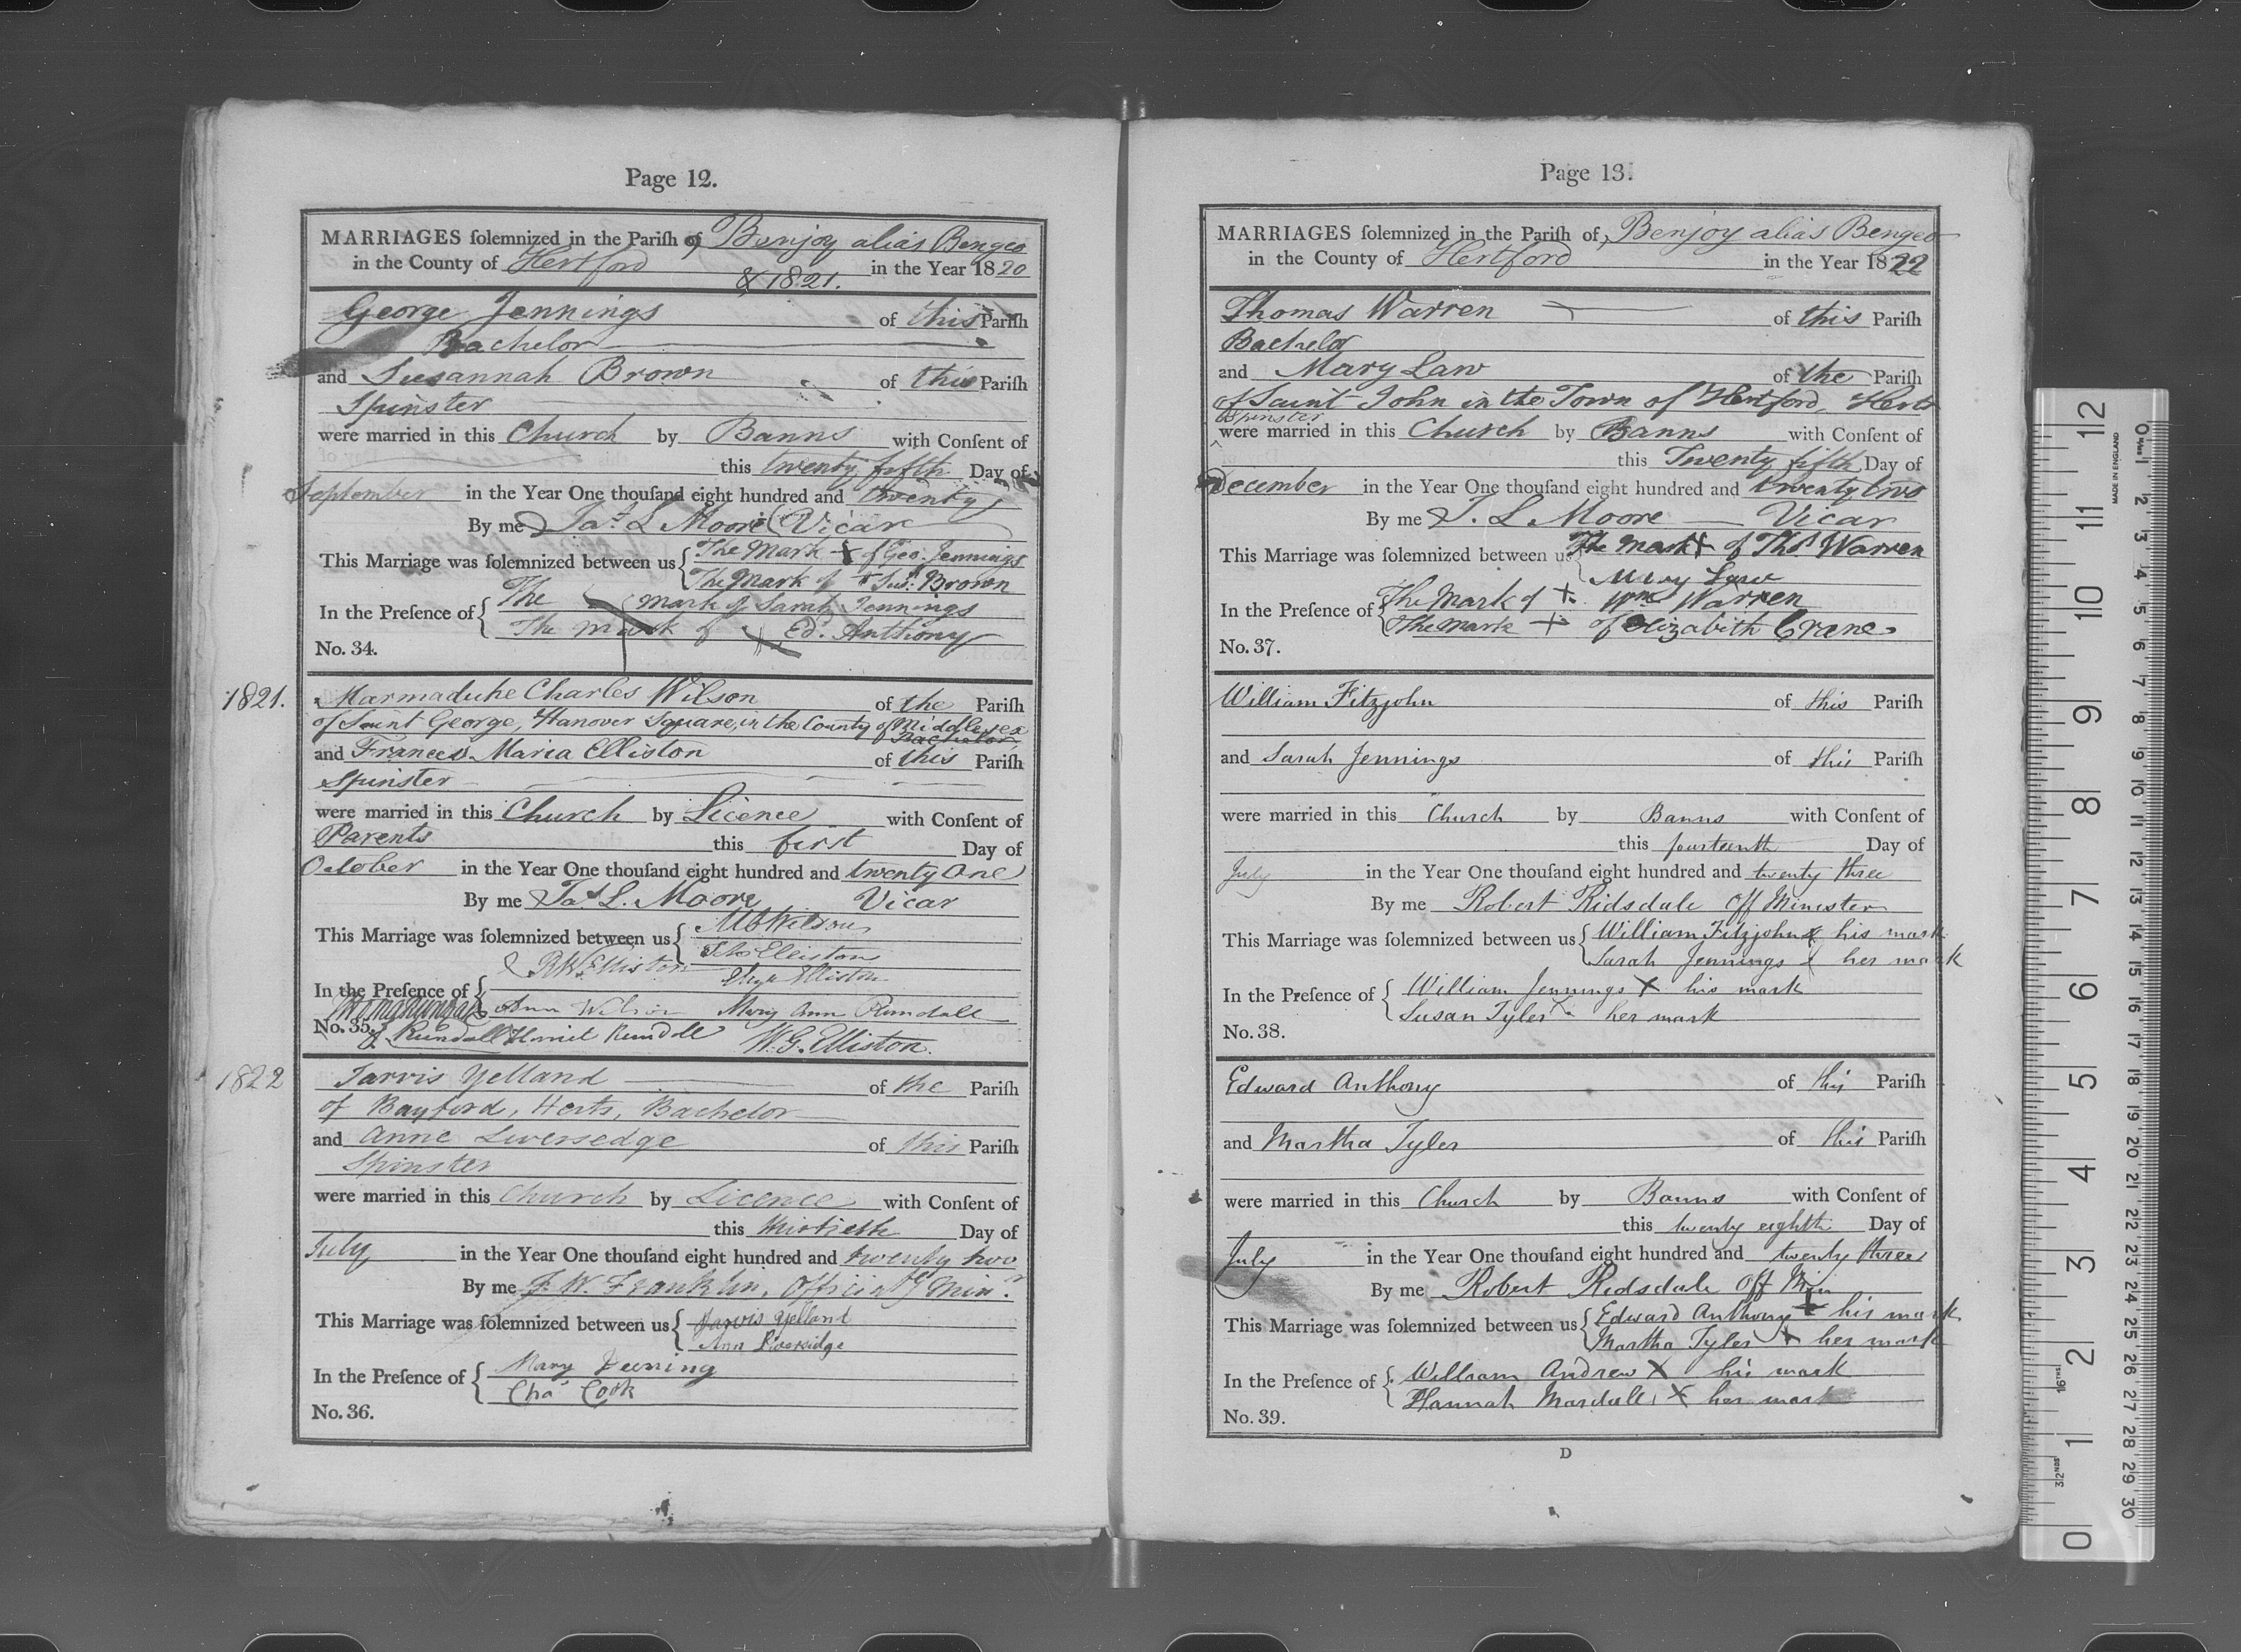 Page 12.
MARRIAGES ſolemnized in the Pariſh of Benjoy alias Bengeo
in the County of Hertford & 1821. in the Year 1820
George Jennings of this Pariſh
Bachelor
and Susannah Brown of this Pariſh
Spinster
were married in this Church by Banns with Conſent of
this twenty fifth Day of
September in the Year One thouſand eight hundred and twenty
By me Jas. L Moore Vicar
This Marriage was ſolemnized between us The Mark + of Geo. Jennings
The Mark of + Sus: Brown
In the Preſence of The mark of Sarah Jennings
The mark of X Ed. Anthony
No. 34.
1821. Marmaduke Charles Wilson of the Pariſh
of Saint George, Hanover Square, in the County of Middlesex
Bachelor
and Frances Maria Elliston of this Pariſh
Spinster
were married in this Church by Licence with Conſent of
Parents this first Day of
October in the Year One thouſand eight hundred and twenty one
By me Jas. L. Moore Vicar
This Marriage was ſolemnized between us M C Wilson
Elliston
R W Elliston Eliza Elliston
In the Preſence of Ann Wilson Mary Ann Rundall
No. 35. Rundall Harriet Rundall W. G. Elliston.
1822 Jarvis Yelland of the Pariſh
of Bayford, Herts, Bachelor
and Anne Liversedge of this Pariſh
Spinster
were married in this Church by Licence with Conſent of
this thirtieth Day of
July in the Year One thouſand eight hundred and twenty two
By me F. W. Franklin, Officiatg Minr.
This Marriage was ſolemnized between us Jarvis Yelland
Ann Liversidge
In the Preſence of Mary Deening
Chas Cook
No. 36.
Page 13.
MARRIAGES ſolemnized in the Pariſh of Benjoy alias Bengeo
in the County of Hertford in the Year 1822
Thomas Warren of this Pariſh
Bachelor
and Mary Law of the Pariſh
of Saint John in the Town of Hertford, Herts
Spinster
were married in this Church by Banns with Conſent of
this Twenty fifth Day of
December in the Year One thouſand eight hundred and twenty two
By me J. L Moore Vicar
This Marriage was ſolemnized between us The mark + of Thos Warren
Mary Law
In the Preſence of The Mark of + Wm Warren
The mark + of Elizabeth Crane
No. 37.
William Fitzjohn of this Pariſh
and Sarah Jennings of this Pariſh
were married in this Church by Banns with Conſent of
this fourteenth Day of
July in the Year One thouſand eight hundred and twenty three
By me Robert Ridsdale Off Minister
This Marriage was ſolemnized between us William Fitzjohn X his mark
Sarah Jennings X her mark
In the Preſence of William Jennings X his mark
Susan Tyler X her mark
No. 38.
Edward Anthony of this Pariſh
and Martha Tyler of this Pariſh
were married in this Church by Banns with Conſent of
this twenty eighth Day of
July in the Year One thouſand eight hundred and twenty three
By me Robert Ridsdale Off Min
This Marriage was ſolemnized between us Edward Anthony + his mark
Martha Tyler + her mark
In the Preſence of William Andrew X his mark
Hannah Mardall X her mark
No. 39.
D
MADE IN ENGLAND